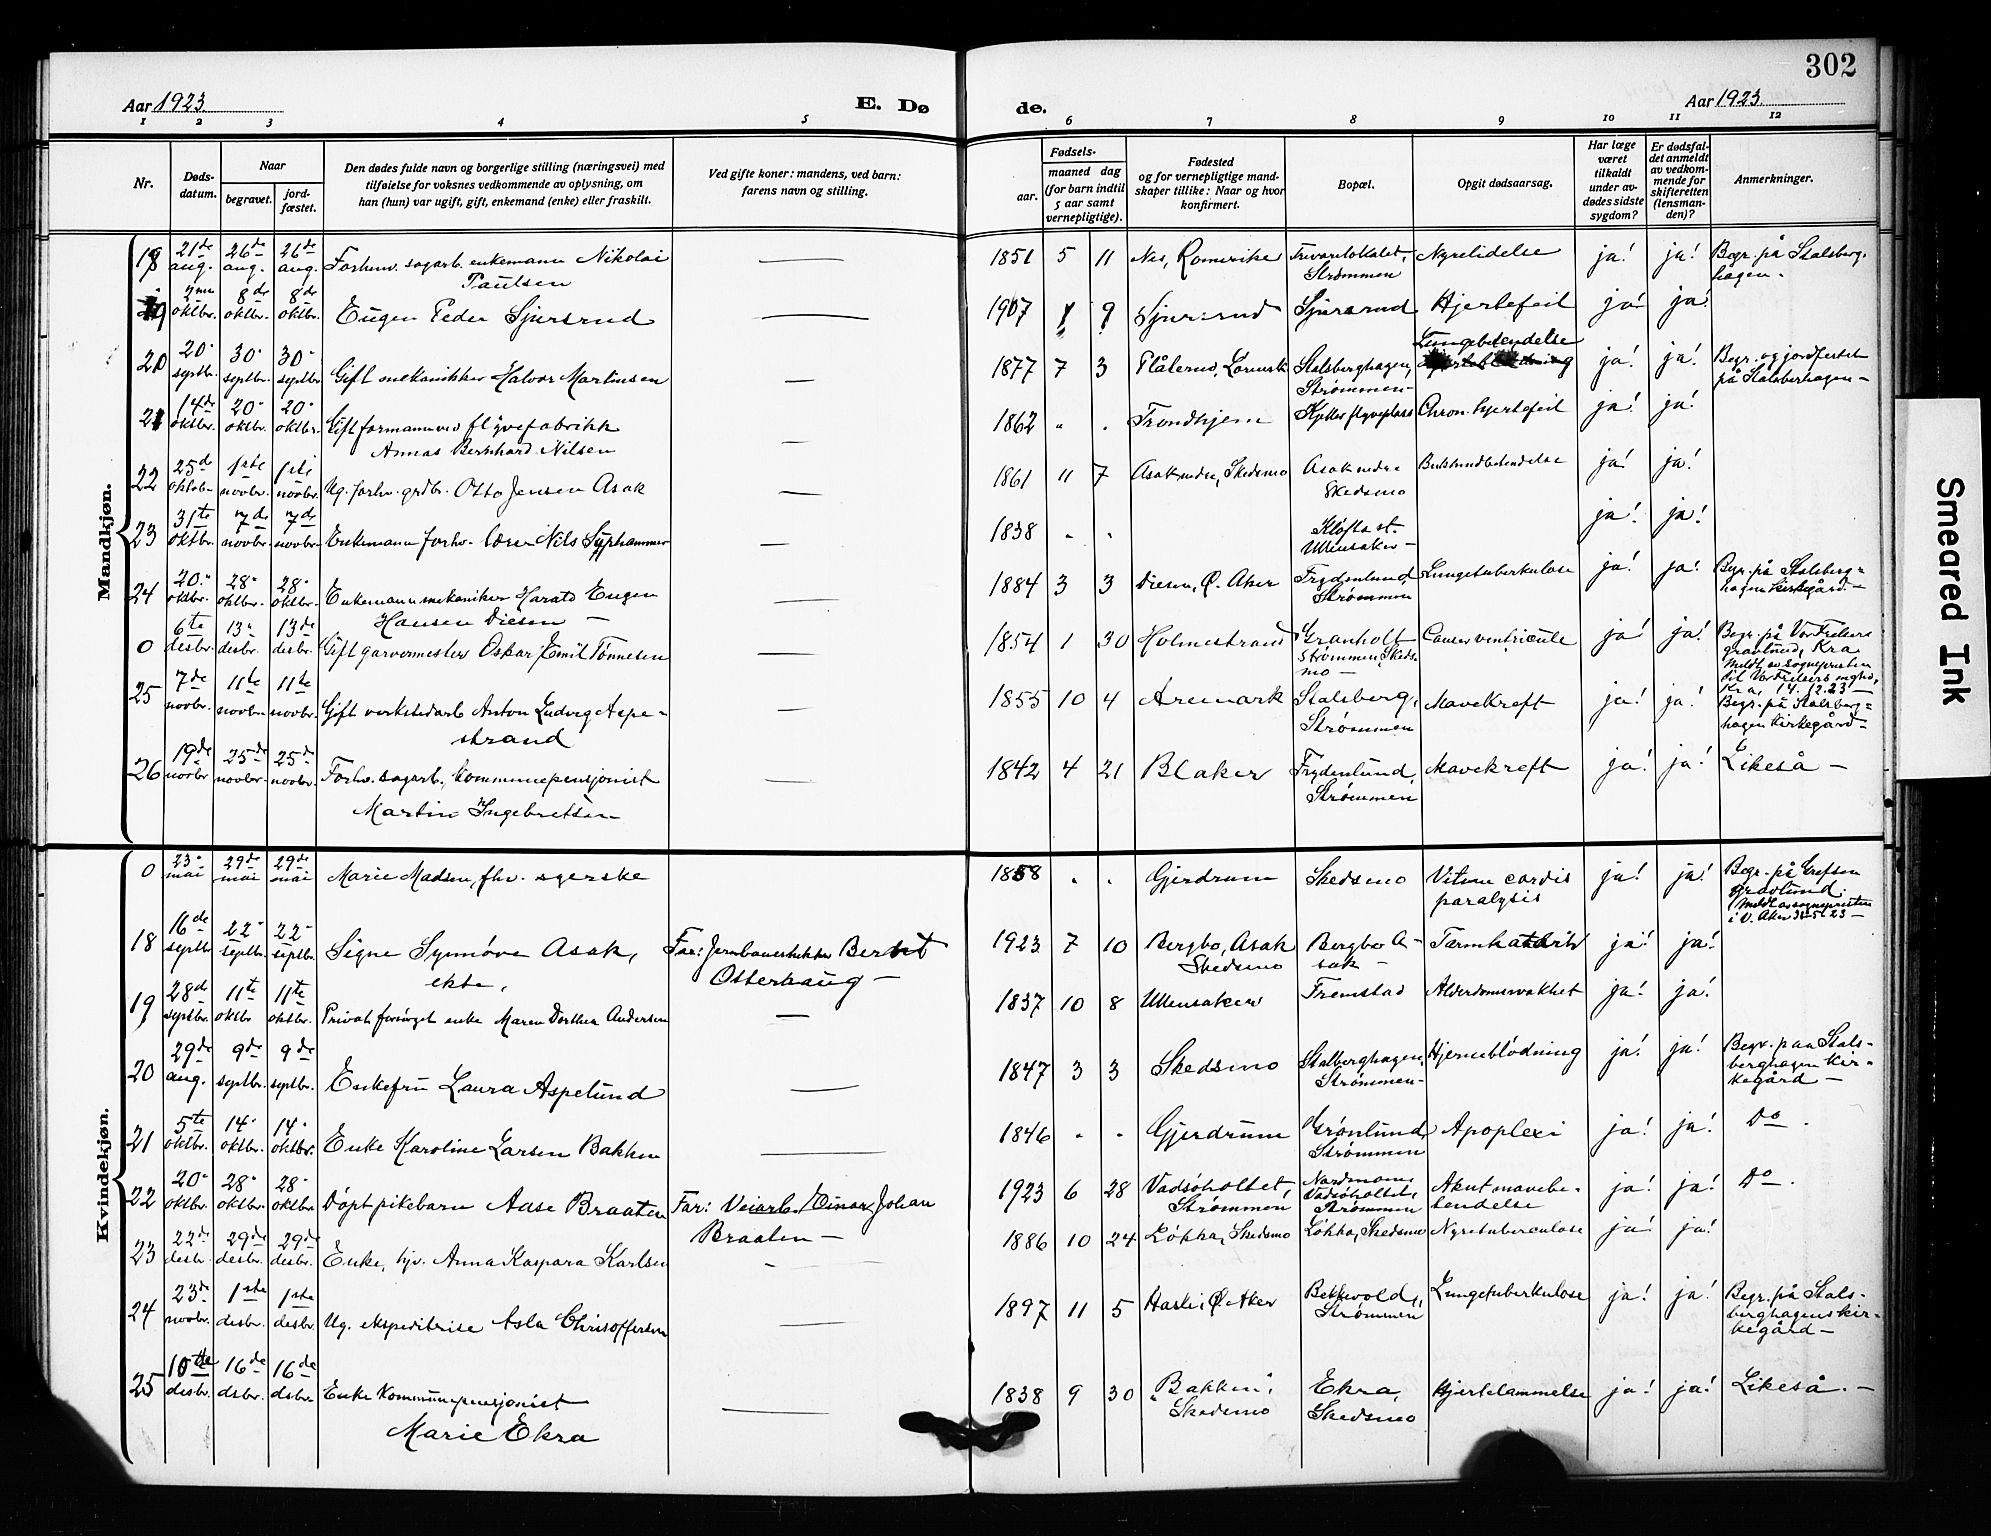 302
Aar 1923
E. Dø
de.
Aar 1923.
1 2 3 4 5 6 7 8 9 10 11 12
Nr.
Døds-
datum.
Naar
begravet.
jord-
fæstet.
Den dødes fulde navn og borgerlige stilling (næringsvei) med
tilføielse for voksnes vedkommende av oplysning, om
han (hun) var ugift, gift, enkemand (enke) eller fraskilt.
Ved gifte koner: mandens, ved barn:
farens navn og stilling.
Fødsels-
aar.
maaned dag
(for barn indtil
5 aar samt
vernepligtige).
Fødested
og for vernepligtige mand-
skaper tillike: Naar og hvor
konfirmert.
Bopæl.
Opgit dødsaarsag.
Har læge
været
tilkaldt
under av-
dødes sidste
sygdom?
Er dødsfal-
det anmeldt
av vedkom-
mende for
skifteretten
(lensman-
den)?
Anmerkninger.
Mandkjøn.
18 21de aug. 26de aug. 26de aug. Forhenv. sagarb. enkemann Nikolai
Paulsen — 1851 5 11 Nes, Romerike
Strømmen Nyrelidelse ja! ja! Begr. på Stalsberg-
hagen.
19 2nne oktbr. 8de oktbr. 8de oktbr. Eugen Peder Sjursrud — 1907 9 Sjursrud Sjursrud Hjertefeil ja! ja!
20 20. septbr. 30. septbr. 30. septbr. Gift mekanikker Halvor Martinsen — 1877 7 3 Flålerud, Lørensk Stalsberghagen,
Strømmen Lungebetendelse ja! ja! Begr. og jordfestet
på Stalsberhagen —
21 14de oktbr. 20. oktbr. 20. oktbr. Gift formann ved flyvefabrikk
Annas Bernhard Nilsen — 1862 " . Trondhjem Kjeller flyveplass Chron. hjertefeil ja! ja!
22 25d oktob- 1ste novbr. 1ste novbr. Ug. forhv. grdbr. Otto Jensen Asak — 1861 11 7 Asak nedre, Skedsmo Asak nedre
Skedsmo ja! ja!
23 31te oktbr. 7de novbr. 7de novbr. Enkemann forhv. lærer Nils Syphammer — 1838 " " Kløfta st.
Ullensaker — ja! ja!
24 20. oktbr. 28. oktbr. 28. oktbr. Enkemann mekaniker Harald Eugen
Hansen Diesen — 1884 3 3 Diesen, Ø. Aker Frydenlund,
Strømmen Lungetuberkulose ja! ja! Begr. på Stalsberg=
hagen Kirkegård. —
0 6te desbr. 13. desbr. 13de desbr. Gift garvermester Oskar Emil Tønnesen — 1854 1 30 Holmestrand Granholt
Strømmen, Skeds-
mo — Cancer ventricule ja! ja! Begr. på Vor Frelsers
gravlund, Kra.
Meldt av sognepresten
til Vor Frelsers mght,
Kra, 14.12.23 —
25 7de novbr. 11te novbr. 11te novbr. Gift verkstedarb. Anton Ludvig Aspe-
strand — 1855 10 4 Aremark Stalsberg,
Strømmen Mavekreft ja! ja! Begr. på Stalsberg=
hagen Kirkegård —
26 19de novbr 25de novbr. 25de novbr. Forhv. sagarb., kommunepensjonist
Martin Ingebretsen — 1842 4 21 Blaker Frydenlund,
Strømmen Mavekreft ja! ja! Likeså —
Kvindekjøn.
0 23. mai 29de mai 29de mai Marie Madsen, fhv. syerske 1858 " " Gjerdrum Skedsmo Vitium cordis
paralysis ja! ja! Begr. på Grefsen
gravlund.
Meldt av sognepresten
i V. Aker 31-5-23 —
18 16de septbr. 22. septbr. 22. septbr. Signe Synnøve Asak,
ekte, Far: Jernbanestikker Bernt
Osterhaug — 1923 7 10 Bergbo, Asak
Skedsmo Bergbo A-
sak — Tarmkatarrh ja! ja!
19 28d septbr. 11te oktbr 11te oktbr. Privat forsørget enke Maren Dorthea Andersen — 1837 10 8 Ullensaker Fremstad Alderdomssvakhet ja! ja!
20 29de aug. 9de septbr. 9de septbr. Enkefru Laura Aspelund — 1847 3 3 Skedsmo Stalberghagen,
Strømmen — Hjerneblödning ja! ja! Begr. paa Stals-
berghagen Kir-
kegård —
21 5te oktbr. 14. oktbr. 14. oktbr. Enke Karoline Larsen Bakken — 1846 " " Gjerdrum Grønlund,
Strømmen Apoplexi ja! ja! Do.
22 20. oktbr. 28. oktbr. 28. oktbr. Døpt pikebarn Aase Braaten Far: Veiarb. Einar Johan
Braaten — 1923 6 28 Vadsøholtet,
Strømmen Nordmom
Vadsøholtet,
Strømmen Akut mavebe-
tendelse ja! ja! Do.
23 22de desbr. 29de desbr. 29de desbr. Enke, hjv. Anna Kaspara Karlsen - 1886 10 24 Løkka, Skedsmo Løkka, Skedsmo Nyretuberculose ja! ja!
24 23de novbr. 1ste desbr. 1ste desbr. Ug. ekspeditrise Asla Christoffersen — 1897 11 5 Hasle, Ø. Aker Bekkevold,
Strømmen Lungetuberkulose ja! ja! Begr. på Stals-
berghagens kir-
kegård —
25 10de desbr. 16de dsbr. 16de dsbr. Enke Kommunepensjonist
Marie Ekra — 1838 9 30 "Bakken",
Skedsmo Ekra,
Skedsmo Hjertelammelse ja! ja! Likeså. —
Smeared Ink